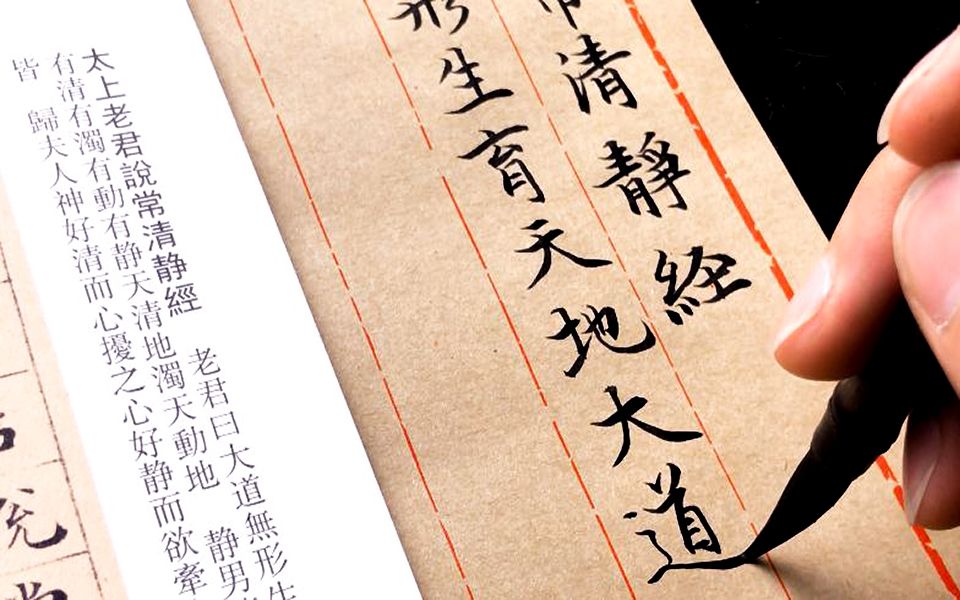 清靜經
形生育天地大道
太上老君說常清静經　老君曰大道無形生
有清有濁有動有静天清地濁天動地　静男
皆　歸夫人神好清而心擾之心好静而欲牽